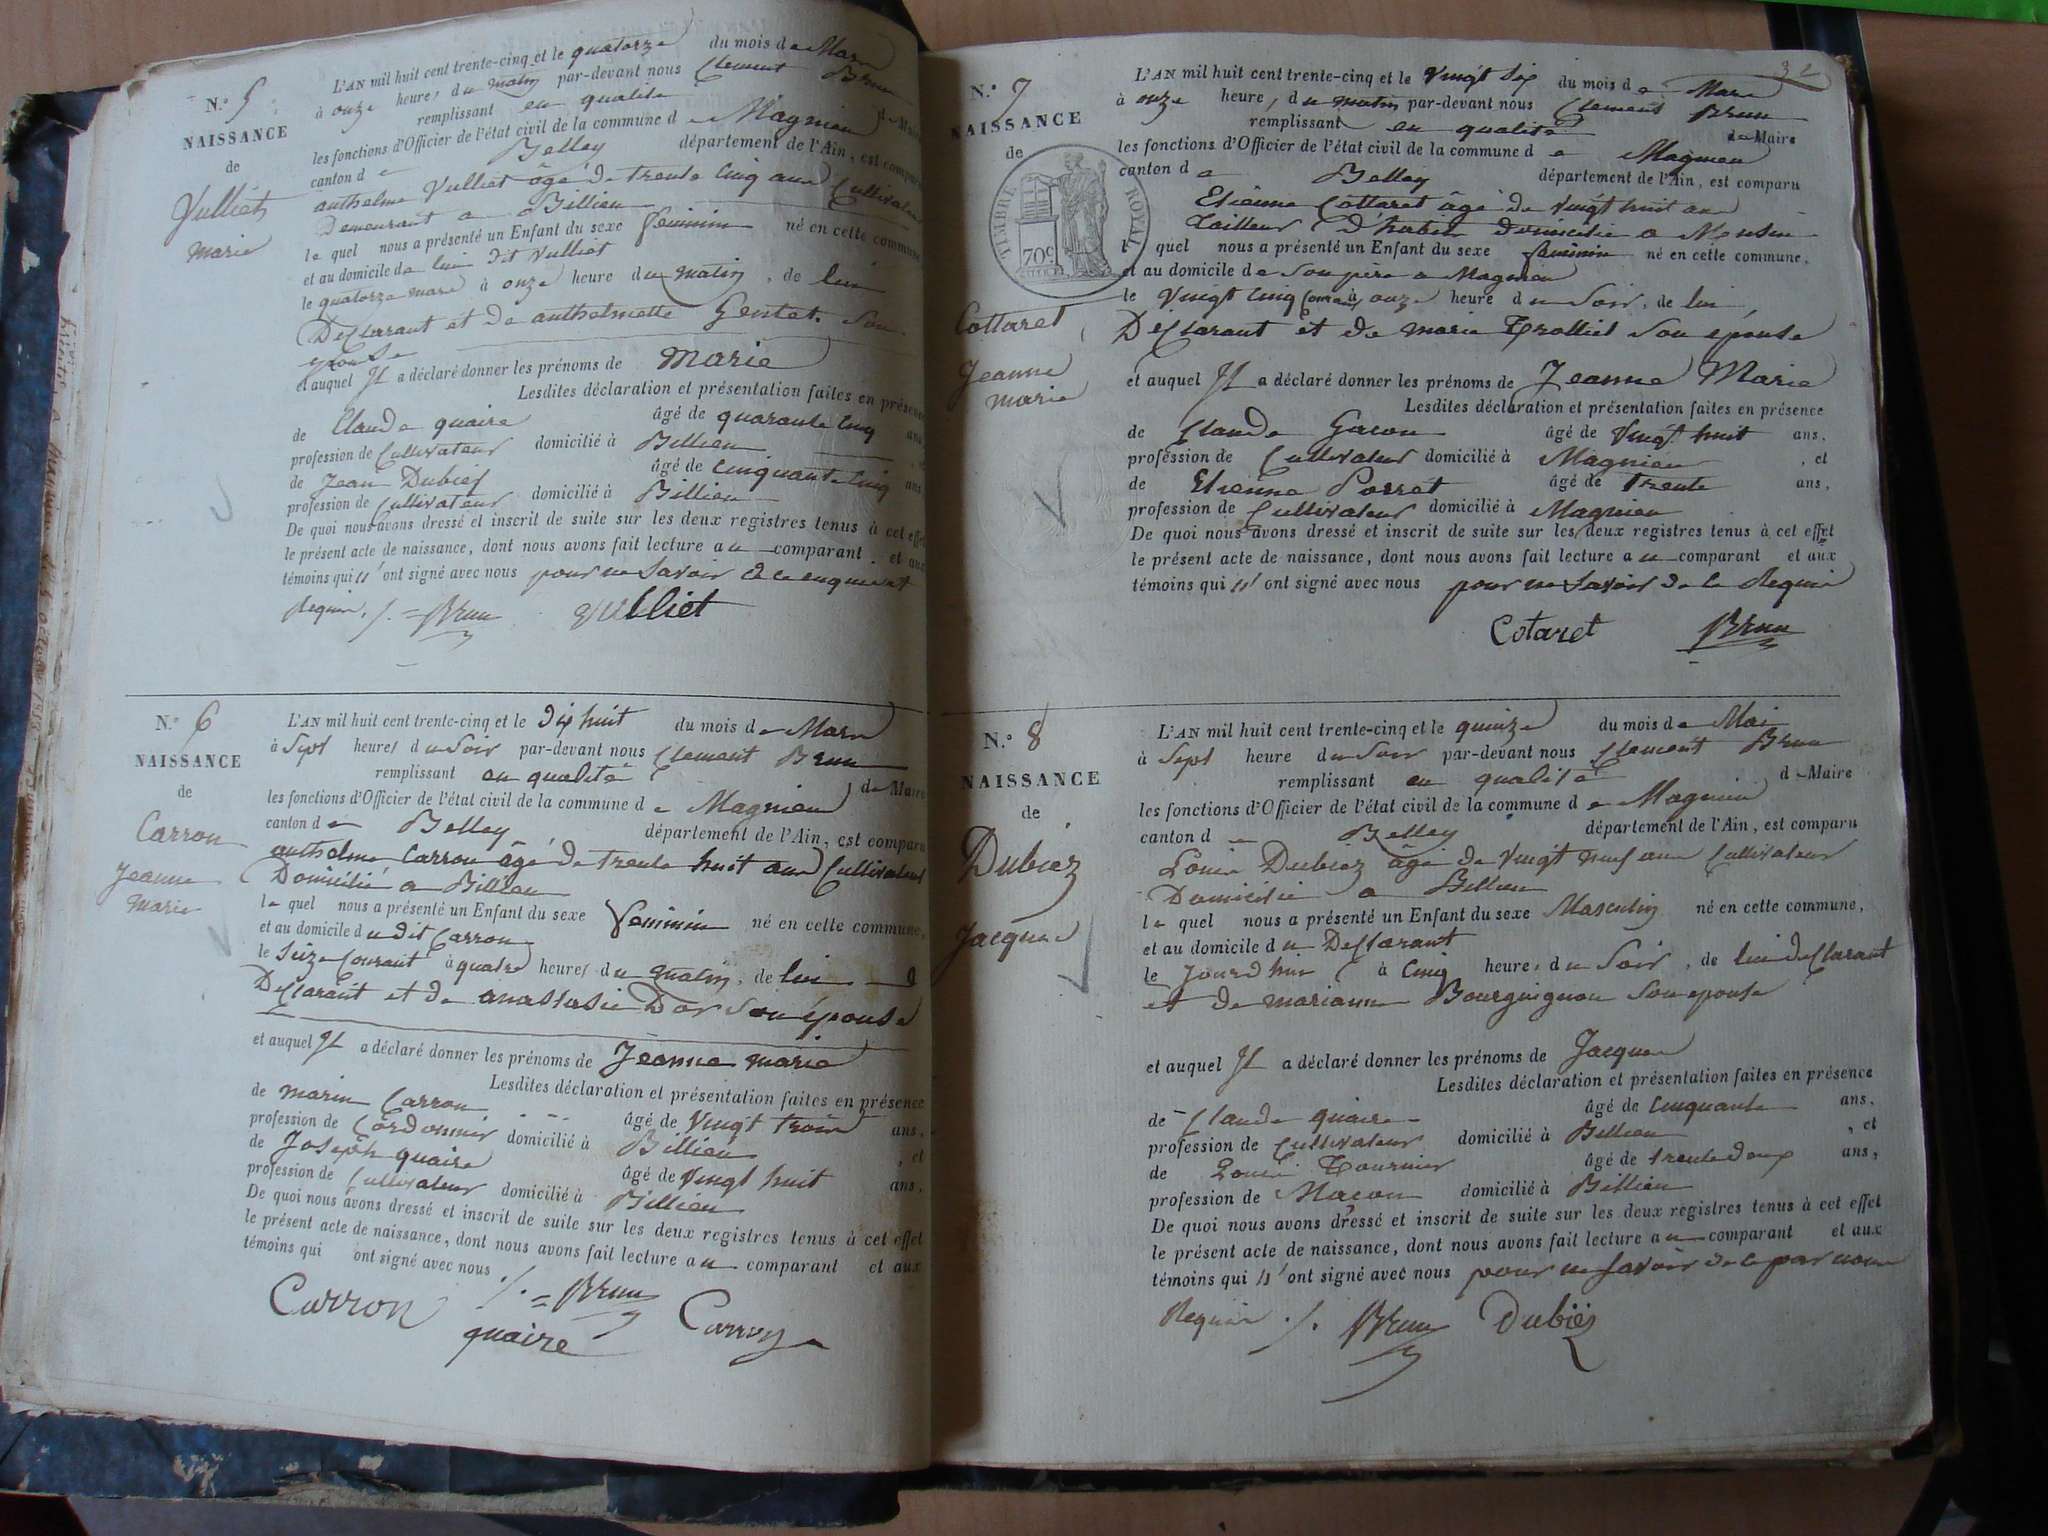 N.º 5
NAISSANCE
de
Vulliet
marie
L'AN mil huit cent trente-cinq et le quatorze du mois de Mars
à onze heures du matin par-devant nous Clement Brun
remplissant en qualité de Maire
les fonctions d'Officier de l'état civil de la commune de Magnieu
canton de Belley département de l'Ain, est comparu
anthelme Vulliet âgé de trente cinq ans Cultivateur
Demeurant a Billieu
le quel nous a présenté un Enfant du sexe feminin né en cette commune
et au domicile de lui dit Vulliet
le quatorze mars à onze heure du matin, de lui
Déclarant et de anthelmette Gentet son
epouse
et auquel Il a déclaré donner les prénoms de Marie
Lesdites déclaration et présentation faites en présence
de Claude quaire âgé de quarante cinq ans
profession de Cultivateur domicilié à Billieu
de Jean Dubiez âgé de cinquante cinq ans
profession de Cultivateur domicilié à Billieu
De quoi nous avons dressé et inscrit de suite sur les deux registres tenus à cet effet
le présent acte de naissance, dont nous avons fait lecture au comparant et aux
témoins qui n'ont signé avec nous pour ne savoir de ce enquient
Requis ./. Brun Vulliet
N.º 6
NAISSANCE
de
Carron
Jeanne
marie
L'AN mil huit cent trente-cinq et le dix huit du mois de Mars
à sept heures du soir par-devant nous Clement Brun
remplissant en qualité de Maire
les fonctions d'Officier de l'état civil de la commune de Magnieu
canton de Belley département de l'Ain, est comparu
anthelme Carron âgé de trente huit ans Cultivateur
Domicilié a Billieu
le quel nous a présenté un Enfant du sexe feminin né en cette commune,
et au domicile du dit Carron
le seize courant à quatre heures du matin, de lui
Déclarant et de anastasie Dor son épouse
et auquel Il a déclaré donner les prénoms de Jeanne marie
Lesdites déclaration et présentation faites en présence
de marin Carron âgé de vingt trois ans,
profession de Cordonnier domicilié à Billieu, et
de Joseph quaire âgé de vingt huit ans,
profession de Cultivateur domicilié à Billieu
De quoi nous avons dressé et inscrit de suite sur les deux registres tenus à cet effet
le présent acte de naissance, dont nous avons fait lecture au comparant et aux
témoins qui ont signé avec nous ./.
Carron Brun Carron
quaire
32
N.º 7
NAISSANCE
de
TIMBRE ROYAL
70c
Cottaret
Jeanne
marie
L'AN mil huit cent trente-cinq et le vingt six du mois de Mars
à onze heures du matin par-devant nous Clement Brun
remplissant en qualité de Maire
les fonctions d'Officier de l'état civil de la commune de Magnieu
canton de Belley département de l'Ain, est comparu
Etienne Cottaret âgé de vingt huit ans
Tailleur d'habits domicilié a
le quel nous a présenté un Enfant du sexe féminin né en cette commune,
et au domicile de son père a Magnieu
le vingt cinq courant à onze heure du soir, de lui
Déclarant et de marie Trolliet son epouse
et auquel Il a déclaré donner les prénoms de Jeanne Marie
Lesdites déclaration et présentation faites en présence
de Claude Gacon âgé de vingt huit ans,
profession de Cultivateur domicilié à Magnieu, et
de Etienne Porret âgé de trente ans,
profession de Cultivateur domicilié à Magnieu
De quoi nous avons dressé et inscrit de suite sur les deux registres tenus à cet effet
le présent acte de naissance, dont nous avons fait lecture au comparant et aux
témoins qui n'ont signé avec nous pour ne savoir de ce Requis
Cotaret Brun
N.º 8
NAISSANCE
de
Dubiez
Jacques
L'AN mil huit cent trente-cinq et le quinze du mois de Mai
à sept heure du soir par-devant nous Clement Brun
remplissant en qualité de Maire
les fonctions d'Officier de l'état civil de la commune de Magnieu
canton de Belley département de l'Ain, est comparu
Louis Dubiez âgé de vingt neuf ans Cultivateur
Domicilié a Billieu
le quel nous a présenté un Enfant du sexe Masculin né en cette commune,
et au domicile du Déclarant
le jourd'hui à cinq heures du soir, de lui déclarant
et de marianne Bourguignon son epouse
et auquel Il a déclaré donner les prénoms de Jacques
Lesdites déclaration et présentation faites en présence
de Claude quaire âgé de cinquante ans,
profession de Cultivateur domicilié à Billieu, et
de Louis Tournier âgé de trente deux ans,
profession de Maçon domicilié à Billieu
De quoi nous avons dressé et inscrit de suite sur les deux registres tenus à cet effet
le présent acte de naissance, dont nous avons fait lecture au comparant et aux
témoins qui n'ont signé avec nous pour ne savoir de ce par nous
Requis ./. Brun Dubiez